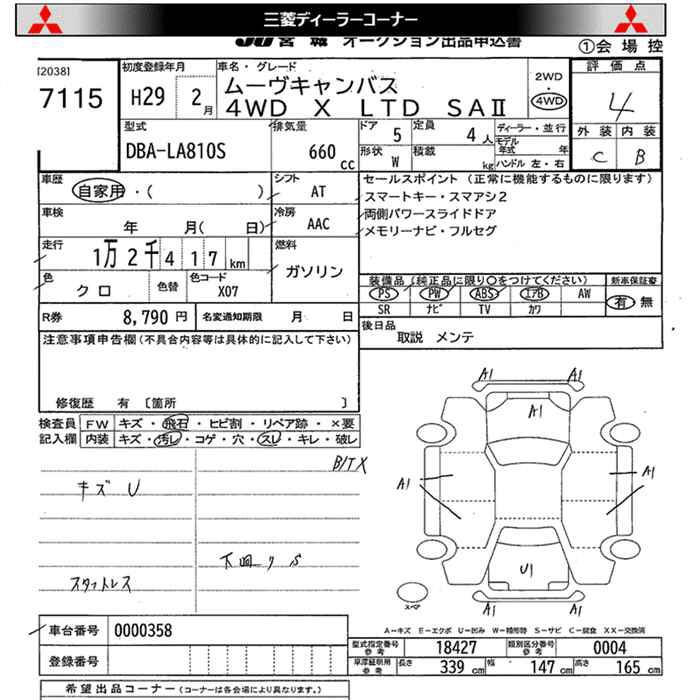 三菱ディーラーコーナー
JU宮城 オークション出品申込書
①会場控
[2038]
7115
初度登録年月
H29 2月
車名・グレード
ムーヴキャンバス
4WD X LTD SAⅡ
2WD
・
4WD
評価点
4
外装 内装
C B
型式
DBA-LA810S
排気量
660 cc
ドア 5
定員 4人
形状 W
積載 kg
ディーラー・並行
モデル年式 年
ハンドル 左・右
車歴
自家用・( )
シフト
AT
車検
年 月( 日)
冷房
AAC
走行
1万2千417km
燃料
ガソリン
色
クロ
色替
色コード
X07
セールスポイント (正常に機能するものに限ります)
スマートキー・スマアシ2
両側パワースライドドア
メモリーナビ・フルセグ
装備品 (純正品に限り○をつけてください)
新車保証書
PS PW ABS エアB AW
SR ナビ TV カワ
有 無
R券 8,790 円
名変通知期限 月 日
後日品
取説 メンテ
注意事項申告欄(不具合内容等は具体的に記入して下さい)
修復歴 有 〔箇所 〕
検査員記入欄
FW キズ・飛石・ヒビ割・リペア跡・×要
内装 キズ・汚レ・コゲ・穴・スレ・キレ・破レ
B/TX
キズ U
下回り S
スタットレス
A1 A1
A1
A1 A1
U1
A1 A1
スペア
A-キズ E-エクボ U-凹み W-補修跡 S-サビ C-腐食 XX-交換済
車台番号 0000358
登録番号
型式指定番号参考 18427
類別区分番号参考 0004
車庫証明用参考 長さ 339 cm 幅 147 cm 高さ 165 cm
希望出品コーナー (コーナーは各会場により異なります。)